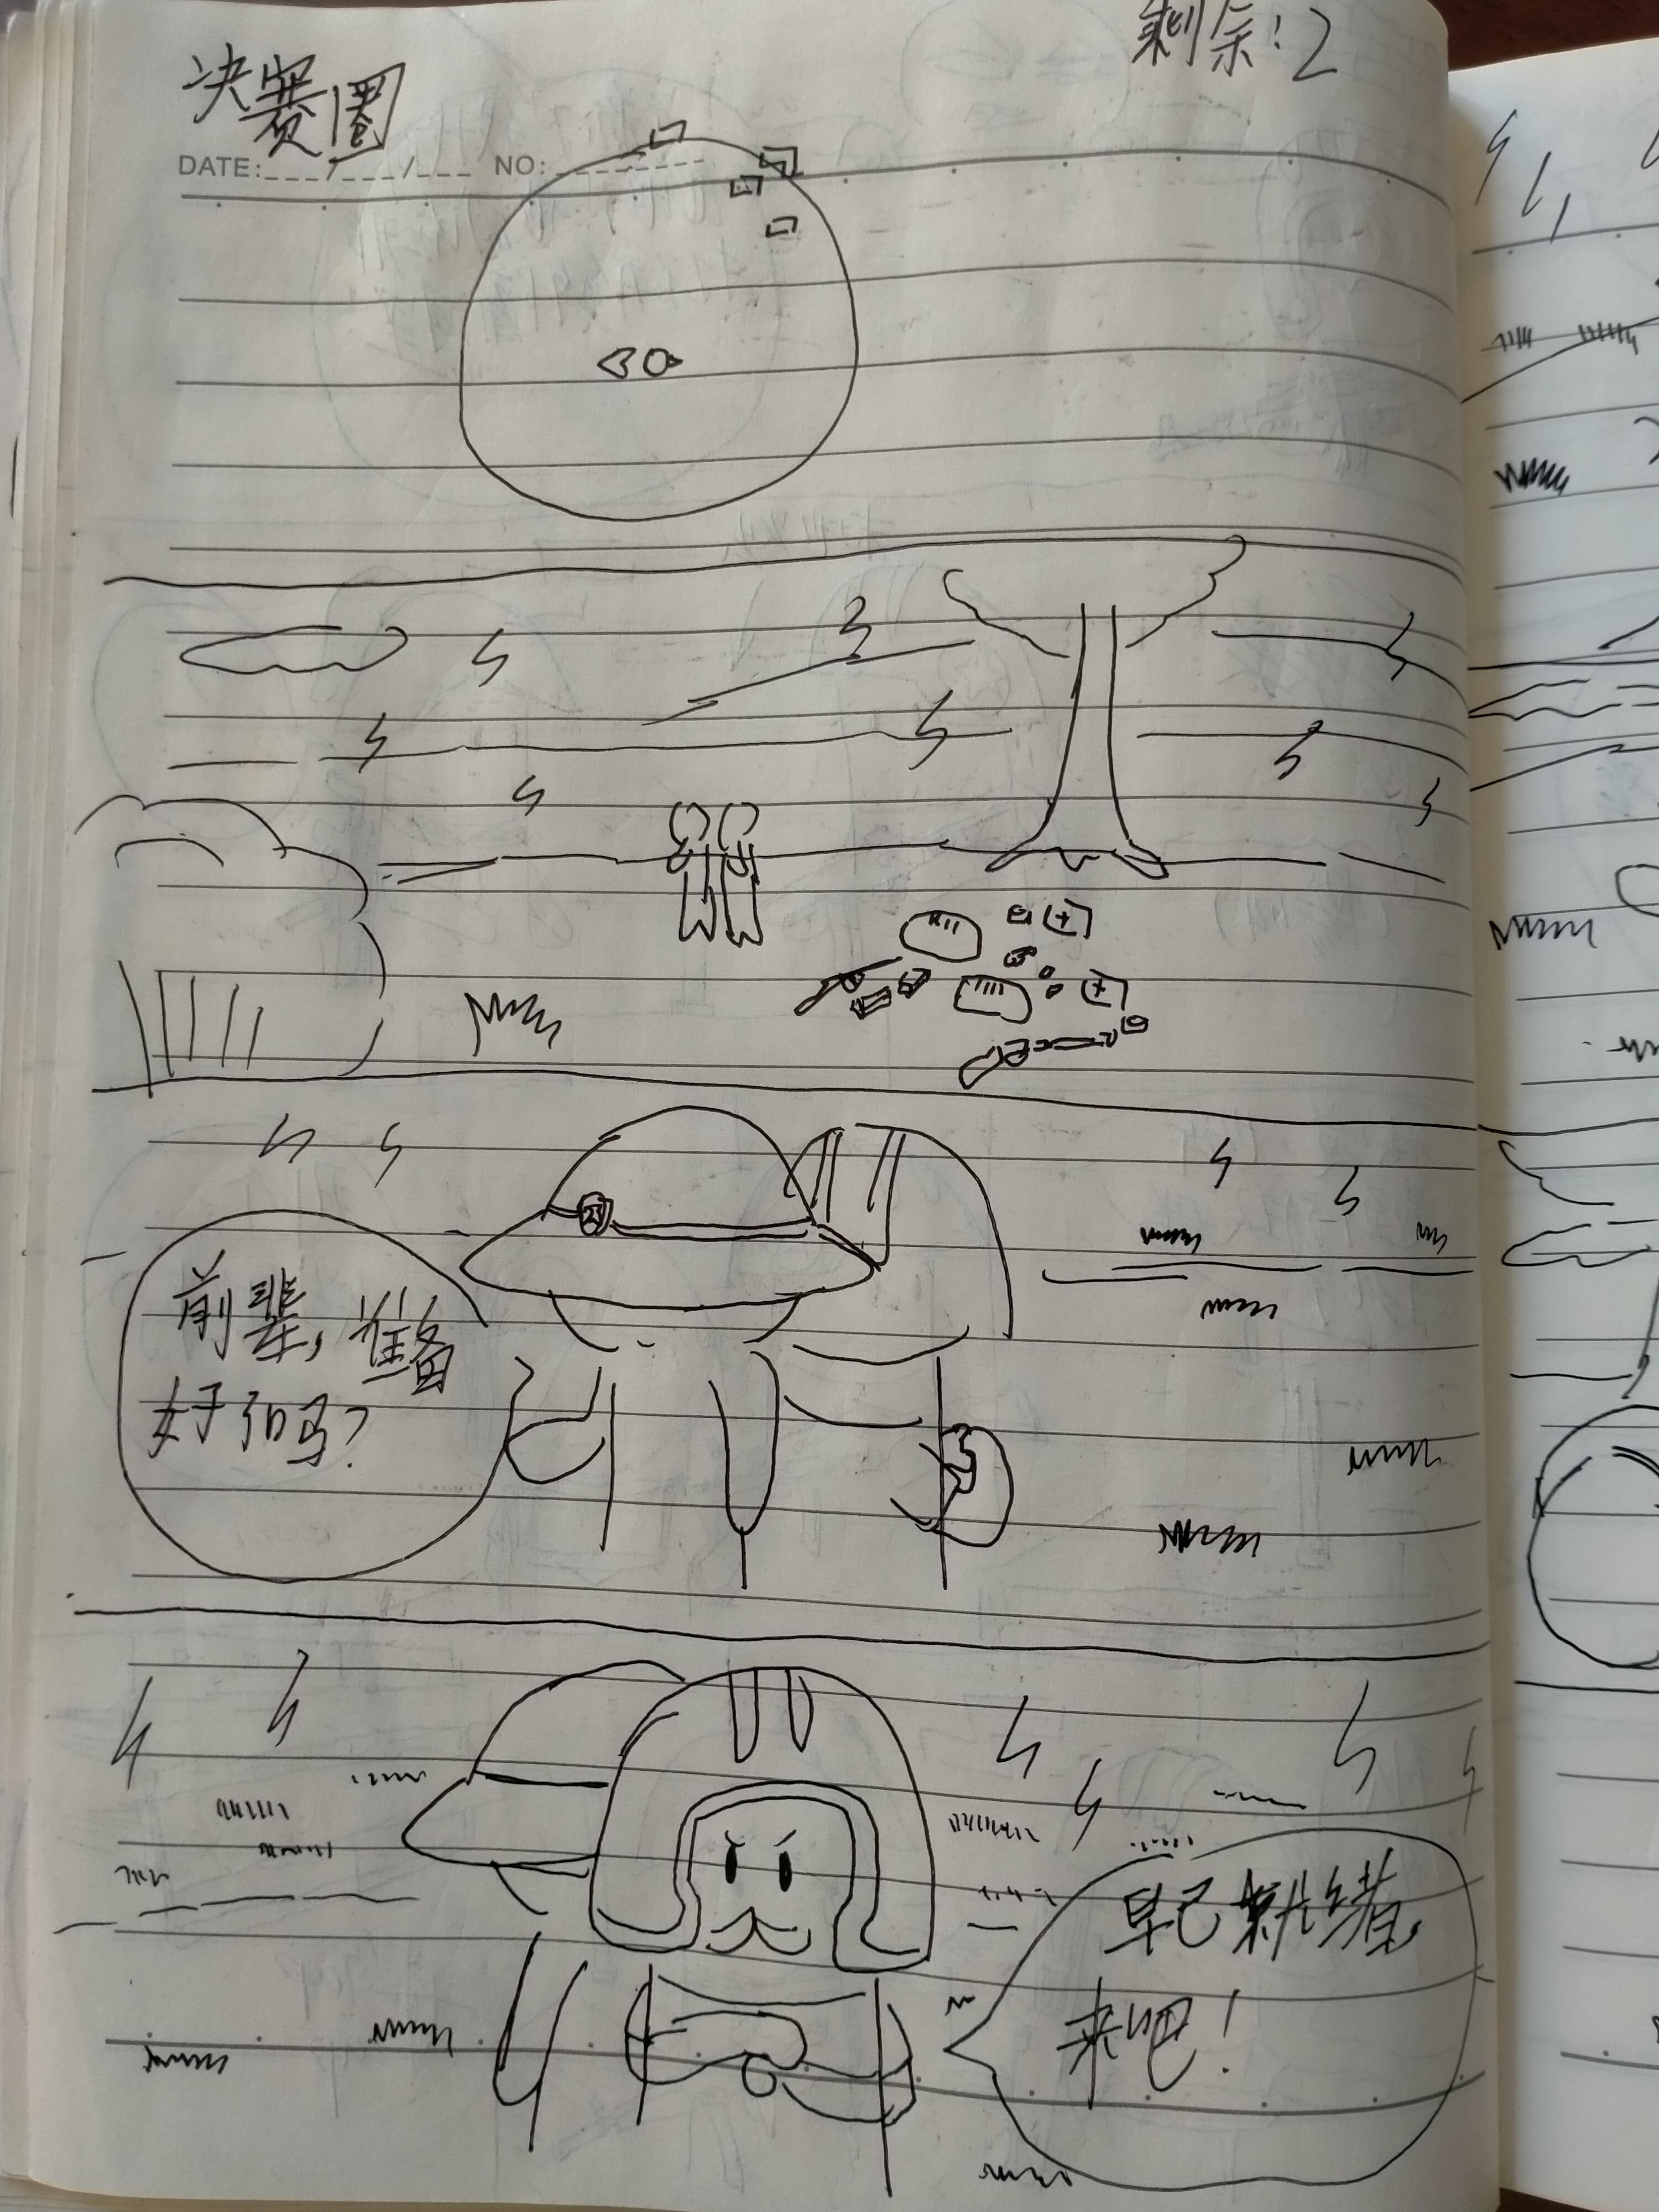 剩余:2
决赛圈
DATE:___/___/___ NO:_______
前辈,准备
好了吗?
早已就绪,
来吧!